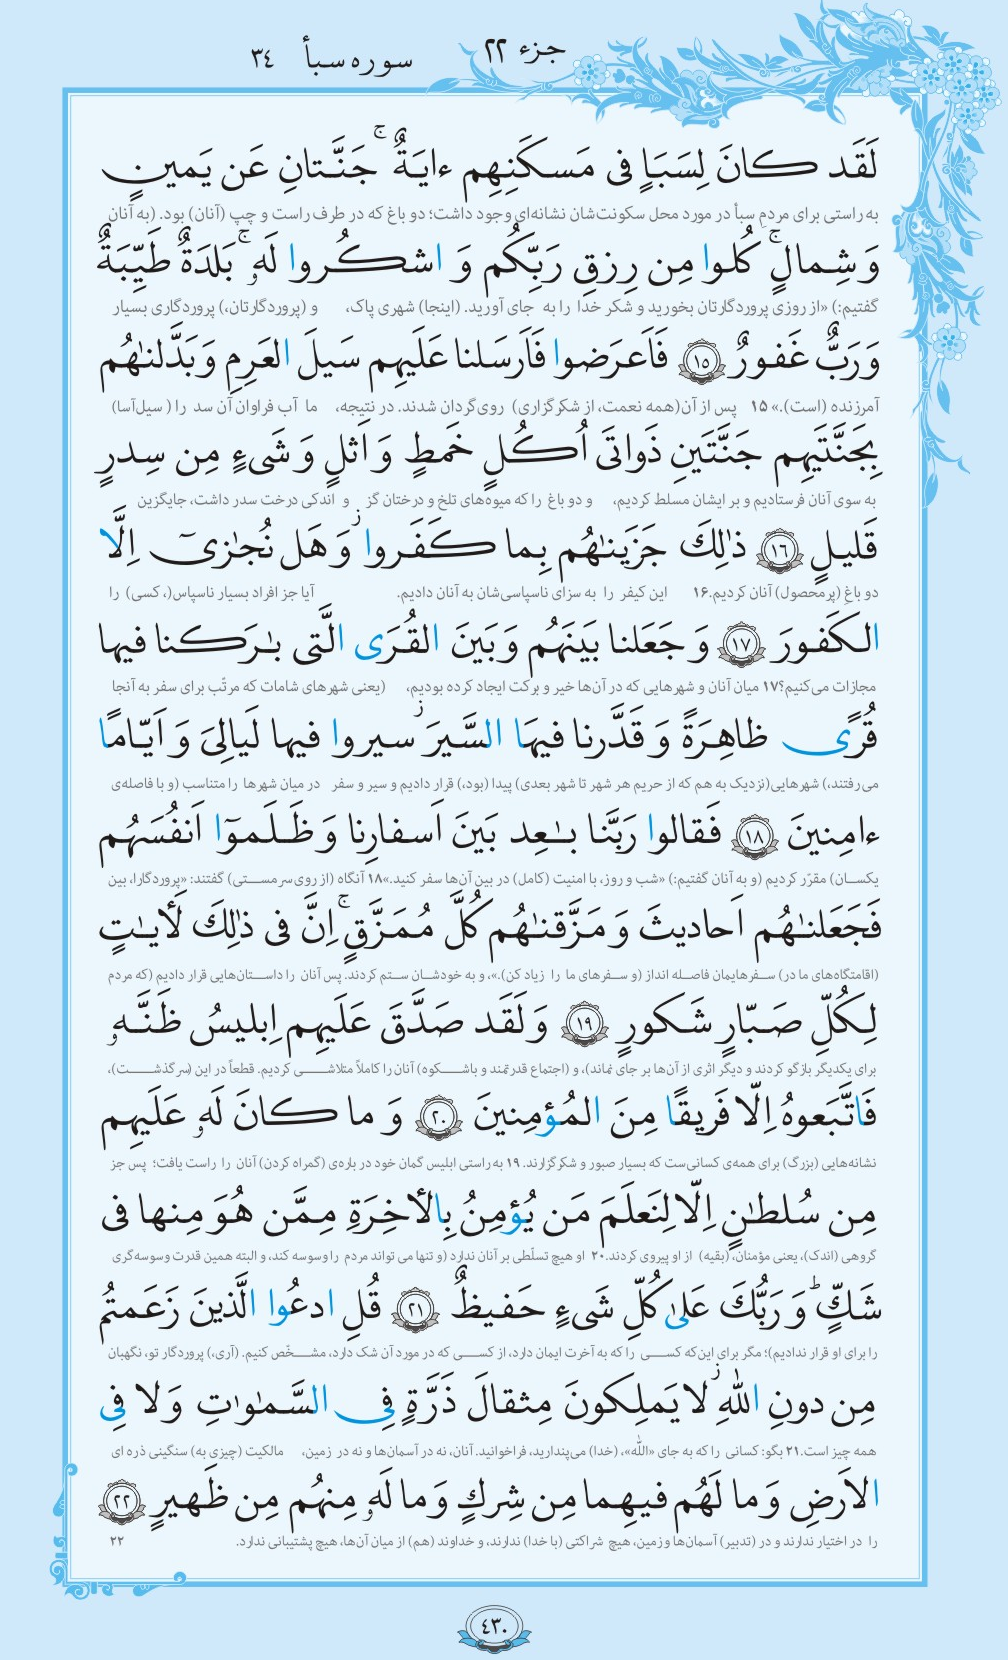 جزء ۲۲
سوره سبأ ۳۴
لَقَد كانَ لِسَبَاٍ فى مَسكَنِهِم ءايَةٌ ۚ جَنَّتانِ عَن يَمينٍ
به راستی برای مردمِ سبأ در مورد محل سکونت‌شان نشانه‌ای وجود داشت؛ دو باغ که در طرف راست و چپ (آنان) بود. (به آنان
وَ شِمالٍ ۚ كُلوا مِن رِزقِ رَبِّكُم وَ اشكُروا لَهٗ ۚ بَلدَةٌ طَيِّبَةٌ
گفتیم:) «از روزی پروردگارتان بخورید و شکر خدا را به جای آورید. (اینجا) شهری پاک، و (پروردگارتان،) پروردگاری بسیار
وَ رَبٌّ غَفورٌ ۱۵ فَاَعرَضوا فَاَرسَلنا عَلَيهِم سَيلَ العَرِمِ وَ بَدَّلنٰهُم
آمرزنده (است).» ۱۵ پس از آن(همه نعمت، از شکرگزاری) روی‌گردان شدند. در نتیجه، ما آب فراوان آن سد را ( سیل‌آسا)
بِجَنَّتَيهِم جَنَّتَينِ ذَواتَى اُكُلٍ خَمطٍ وَ اَثلٍ وَ شَىءٍ مِن سِدرٍ
به سوی آنان فرستادیم و بر ایشان مسلط کردیم، و دو باغ را که میوه‌های تلخ و درختان گز و اندکی درخت سدر داشت، جایگزین
قَليلٍ ۱۶ ذٰلِكَ جَزَينٰهُم بِما كَفَروا ۖ وَ هَل نُجٰزىٓ اِلَّا
دو باغِ (پرمحصول) آنان کردیم.۱۶ این کیفر را به سزای ناسپاسی‌شان به آنان دادیم. آیا جز افراد بسیار ناسپاس(، کسی) را
الكَفورَ ۱۷ وَ جَعَلنا بَينَهُم وَ بَينَ القُرَى الَّتى بٰرَكنا فيها
مجازات می‌کنیم؟۱۷ میان آنان و شهرهایی که در آن‌ها خیر و برکت ایجاد کرده بودیم، (یعنی شهرهای شامات که مرتّب برای سفر به آنجا
قُرًى ظاهِرَةً وَ قَدَّرنا فيهَا السَّيرَ ۖ سيروا فيها لَيالِىَ وَ اَيّامًا
می‌رفتند،) شهرهایی(نزدیک به هم که از حریم هر شهر تا شهر بعدی) پیدا (بود،) قرار دادیم و سیر و سفر در میان شهرها را متناسب (و با فاصله‌ی
ءامِنينَ ۱۸ فَقالوا رَبَّنا بٰعِد بَينَ اَسفارِنا وَ ظَلَموٓا اَنفُسَهُم
یکسان) مقرّر کردیم (و به آنان گفتیم:) «شب و روز، با امنیت (کامل) در بین آن‌ها سفر کنید.»۱۸ آنگاه (از روی سرمستی) گفتند: «پروردگارا، بین
فَجَعَلنٰهُم اَحاديثَ وَ مَزَّقنٰهُم كُلَّ مُمَزَّقٍ ۚ اِنَّ فى ذٰلِكَ لَـٔايٰتٍ
(اقامتگاه‌های ما در) سفرهایمان فاصله انداز (و سفرهای ما را زیاد کن).»، و به خودشان ستم کردند. پس آنان را داستان‌هایی قرار دادیم (که مردم
لِكُلِّ صَبّارٍ شَكورٍ ۱۹ وَ لَقَد صَدَّقَ عَلَيهِم اِبليسُ ظَنَّهٗ
برای یکدیگر بازگو کردند و دیگر اثری از آن‌ها بر جای نماند)، و (اجتماع قدرتمند و باشکوه) آنان را کاملاً متلاشی کردیم. قطعاً در این (سرگذشت)،
فَاتَّبَعوهُ اِلّا فَريقًا مِنَ المُؤمِنينَ ۲۰ وَ ما كانَ لَهٗ عَلَيهِم
نشانه‌هایی (بزرگ) برای همه‌ی کسانی‌ست که بسیار صبور و شکرگزارند. ۱۹ به راستی ابلیس گمان خود در باره‌ی (گمراه کردن) آنان را راست یافت؛ پس جز
مِن سُلطٰنٍ اِلّا لِنَعلَمَ مَن يُؤمِنُ بِالـٔاخِرَةِ مِمَّن هُوَ مِنها فى
گروهی (اندک)، یعنی مؤمنان، (بقیه) از او پیروی کردند.۲۰ او هیچ تسلّطی بر آنان ندارد (و تنها می تواند مردم را وسوسه کند، و البته همین قدرت وسوسه‌گری
شَكٍّ ۗ وَ رَبُّكَ عَلىٰ كُلِّ شَىءٍ حَفيظٌ ۲۱ قُلِ ادعُوا الَّذينَ زَعَمتُم
را برای او قرار ندادیم)؛ مگر برای این‌که کسی را که به آخرت ایمان دارد، از کسی که در مورد آن شک دارد، مشخّص کنیم. (آری،) پروردگار تو، نگهبان
مِن دونِ اللّٰهِ ۖ لا يَملِكونَ مِثقالَ ذَرَّةٍ فِى السَّمٰوٰتِ وَ لا فِى
همه چیز است.۲۱ بگو: کسانی را که به جای «اللّٰه»، (خدا) می‌پندارید، فراخوانید. آنان، نه در آسمان‌ها و نه در زمین، مالکیت (چیزی به) سنگینی ذره ای
الاَرضِ وَ ما لَهُم فيهِما مِن شِركٍ وَ ما لَهٗ مِنهُم مِن ظَهيرٍ ۲۲
را در اختیار ندارند و در (تدبیر) آسمان‌ها و زمین، هیچ شراکتی (با خدا) ندارند، و خداوند (هم) از میان آن‌ها، هیچ پشتیبانی ندارد. ۲۲
۴۳۰